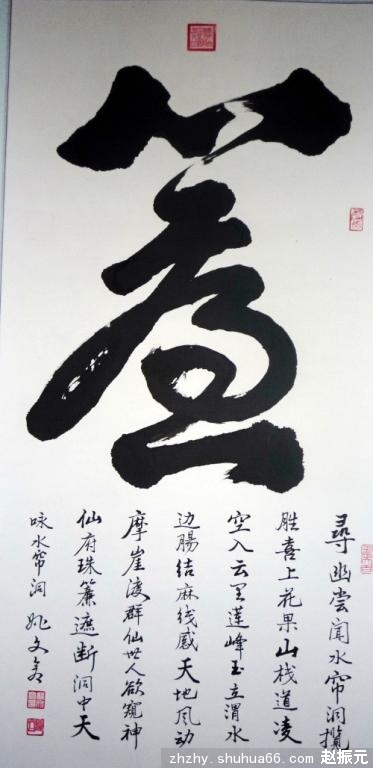 尋幽尝闻水帘洞揽
胜喜上花果山栈道凌
空入云里莲峰玉立渭水
边肠结麻线感天地风动
摩崖凌群仙世人欲窥神
仙府珠簾遮断洞中天
咏水帘洞 姚文
zhzhy.shuhua66.com 赵振元